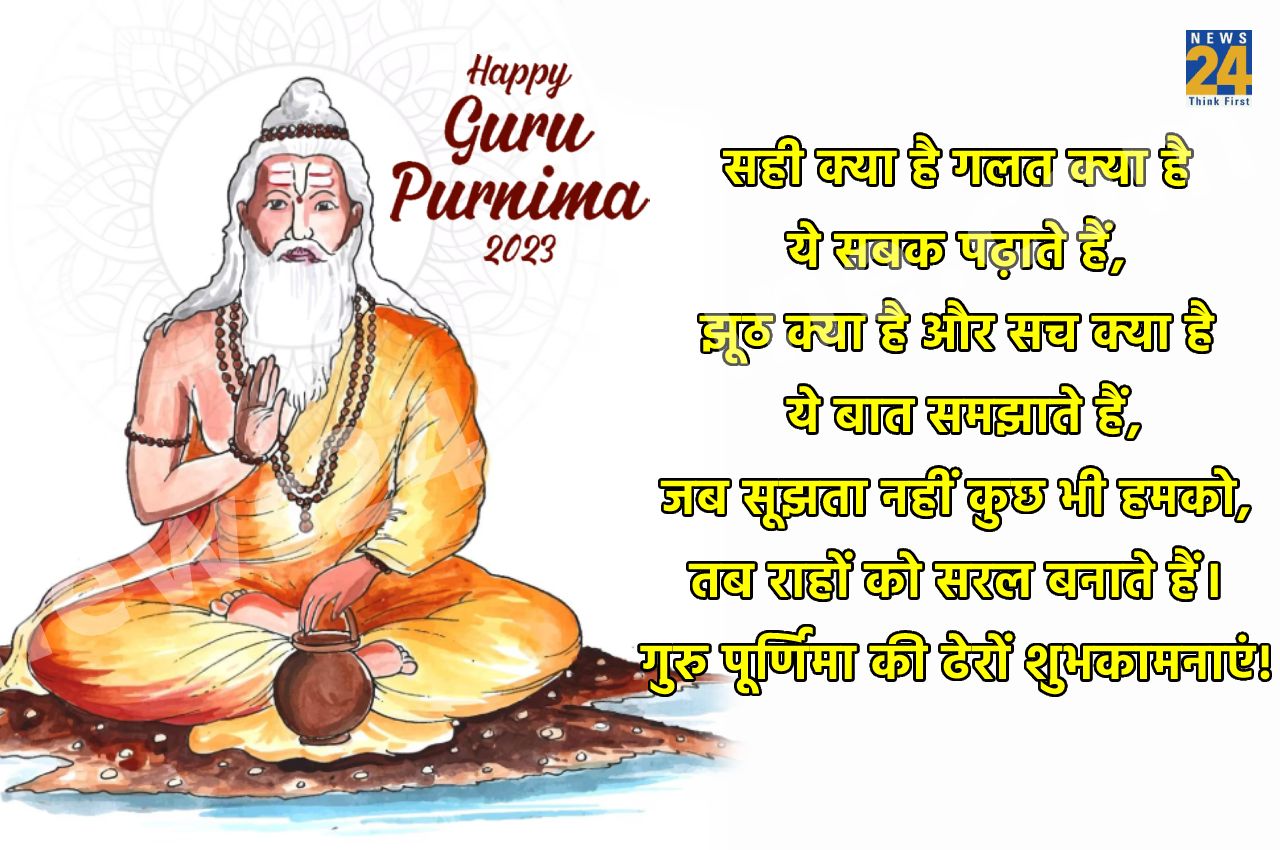 Happy
Guru
Purnima
2023
NEWS
24
Think First
सही क्या है गलत क्या है
ये सबक पढ़ाते हैं,
झूठ क्या है और सच क्या है
ये बात समझाते हैं,
जब सूझता नहीं कुछ भी हमको,
तब राहों को सरल बनाते हैं।
गुरु पूर्णिमा की ढेरों शुभकामनाएं!